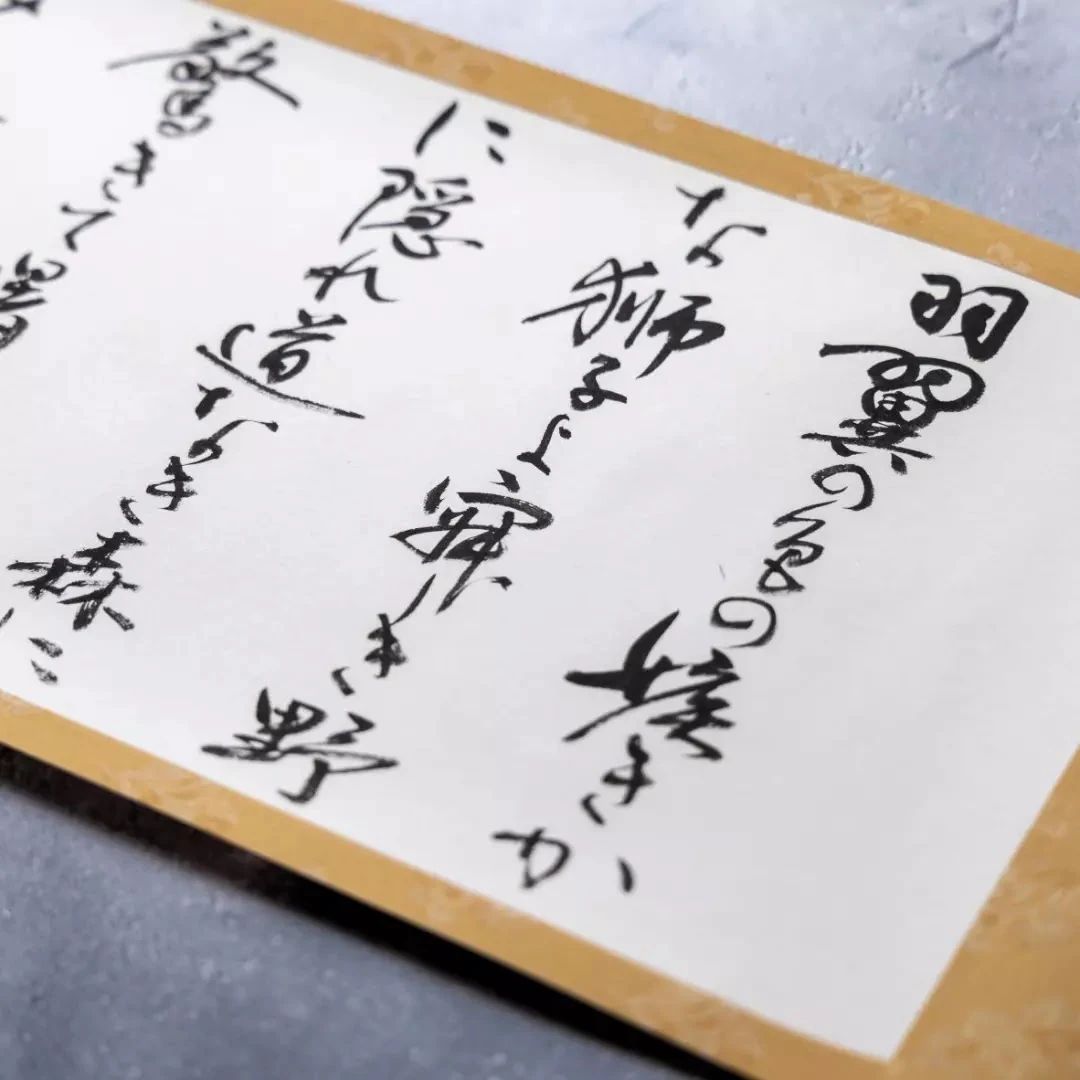 羽翼の色のきか
な獅子よ寂き野
に隠れ道なき森に
きて